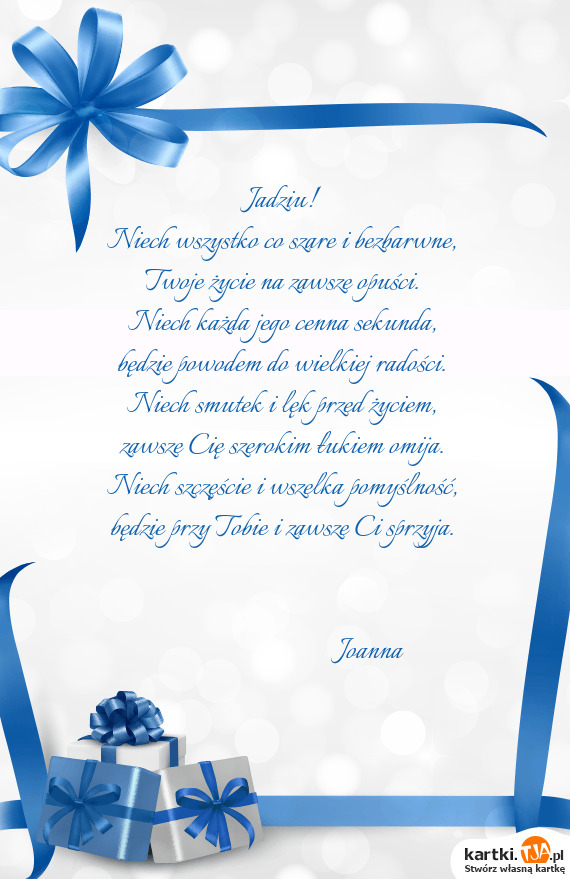 Jadziu!
Niech wszystko co szare i bezbarwne,
Twoje życie na zawsze opuści.
Niech każda jego cenna sekunda,
będzie powodem do wielkiej radości.
Niech smutek i lęk przed życiem,
zawsze Cię szerokim łukiem omija.
Niech szczęście i wszelka pomyślność,
będzie przy Tobie i zawsze Ci sprzyja.
Joanna
kartki.TJA.pl
Stwórz własną kartkę